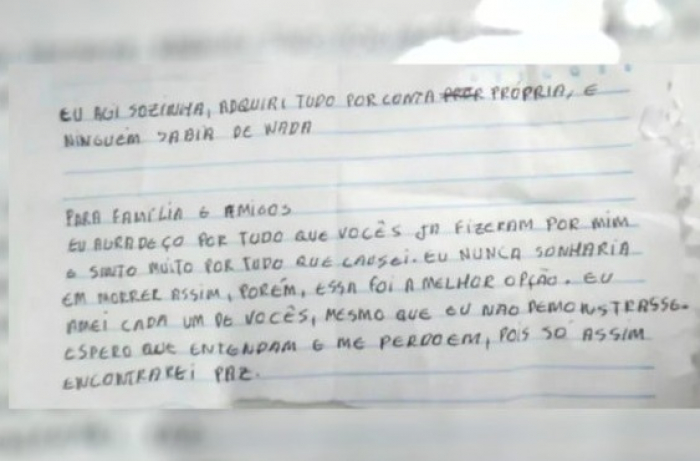 EU AGI SOZINHA, ADQUIRI TUDO POR CONTA PRÓPRIA, E
NINGUÉM SABIA DE NADA
PARA FAMÍLIA E AMIGOS
EU AGRADEÇO POR TUDO QUE VOCÊS JA FIZERAM POR MIM
E SINTO MUITO POR TUDO QUE CAUSEI. EU NUNCA SONHARIA
EM MORRER ASSIM, PORÉM, ESSA FOI A MELHOR OPÇÃO. EU
AMEI CADA UM DE VOCÊS, MESMO QUE EU NÃO DEMONSTRASSE.
ESPERO QUE ENTENDAM E ME PERDOEM, POIS SO ASSIM
ENCONTRAREI PAZ.